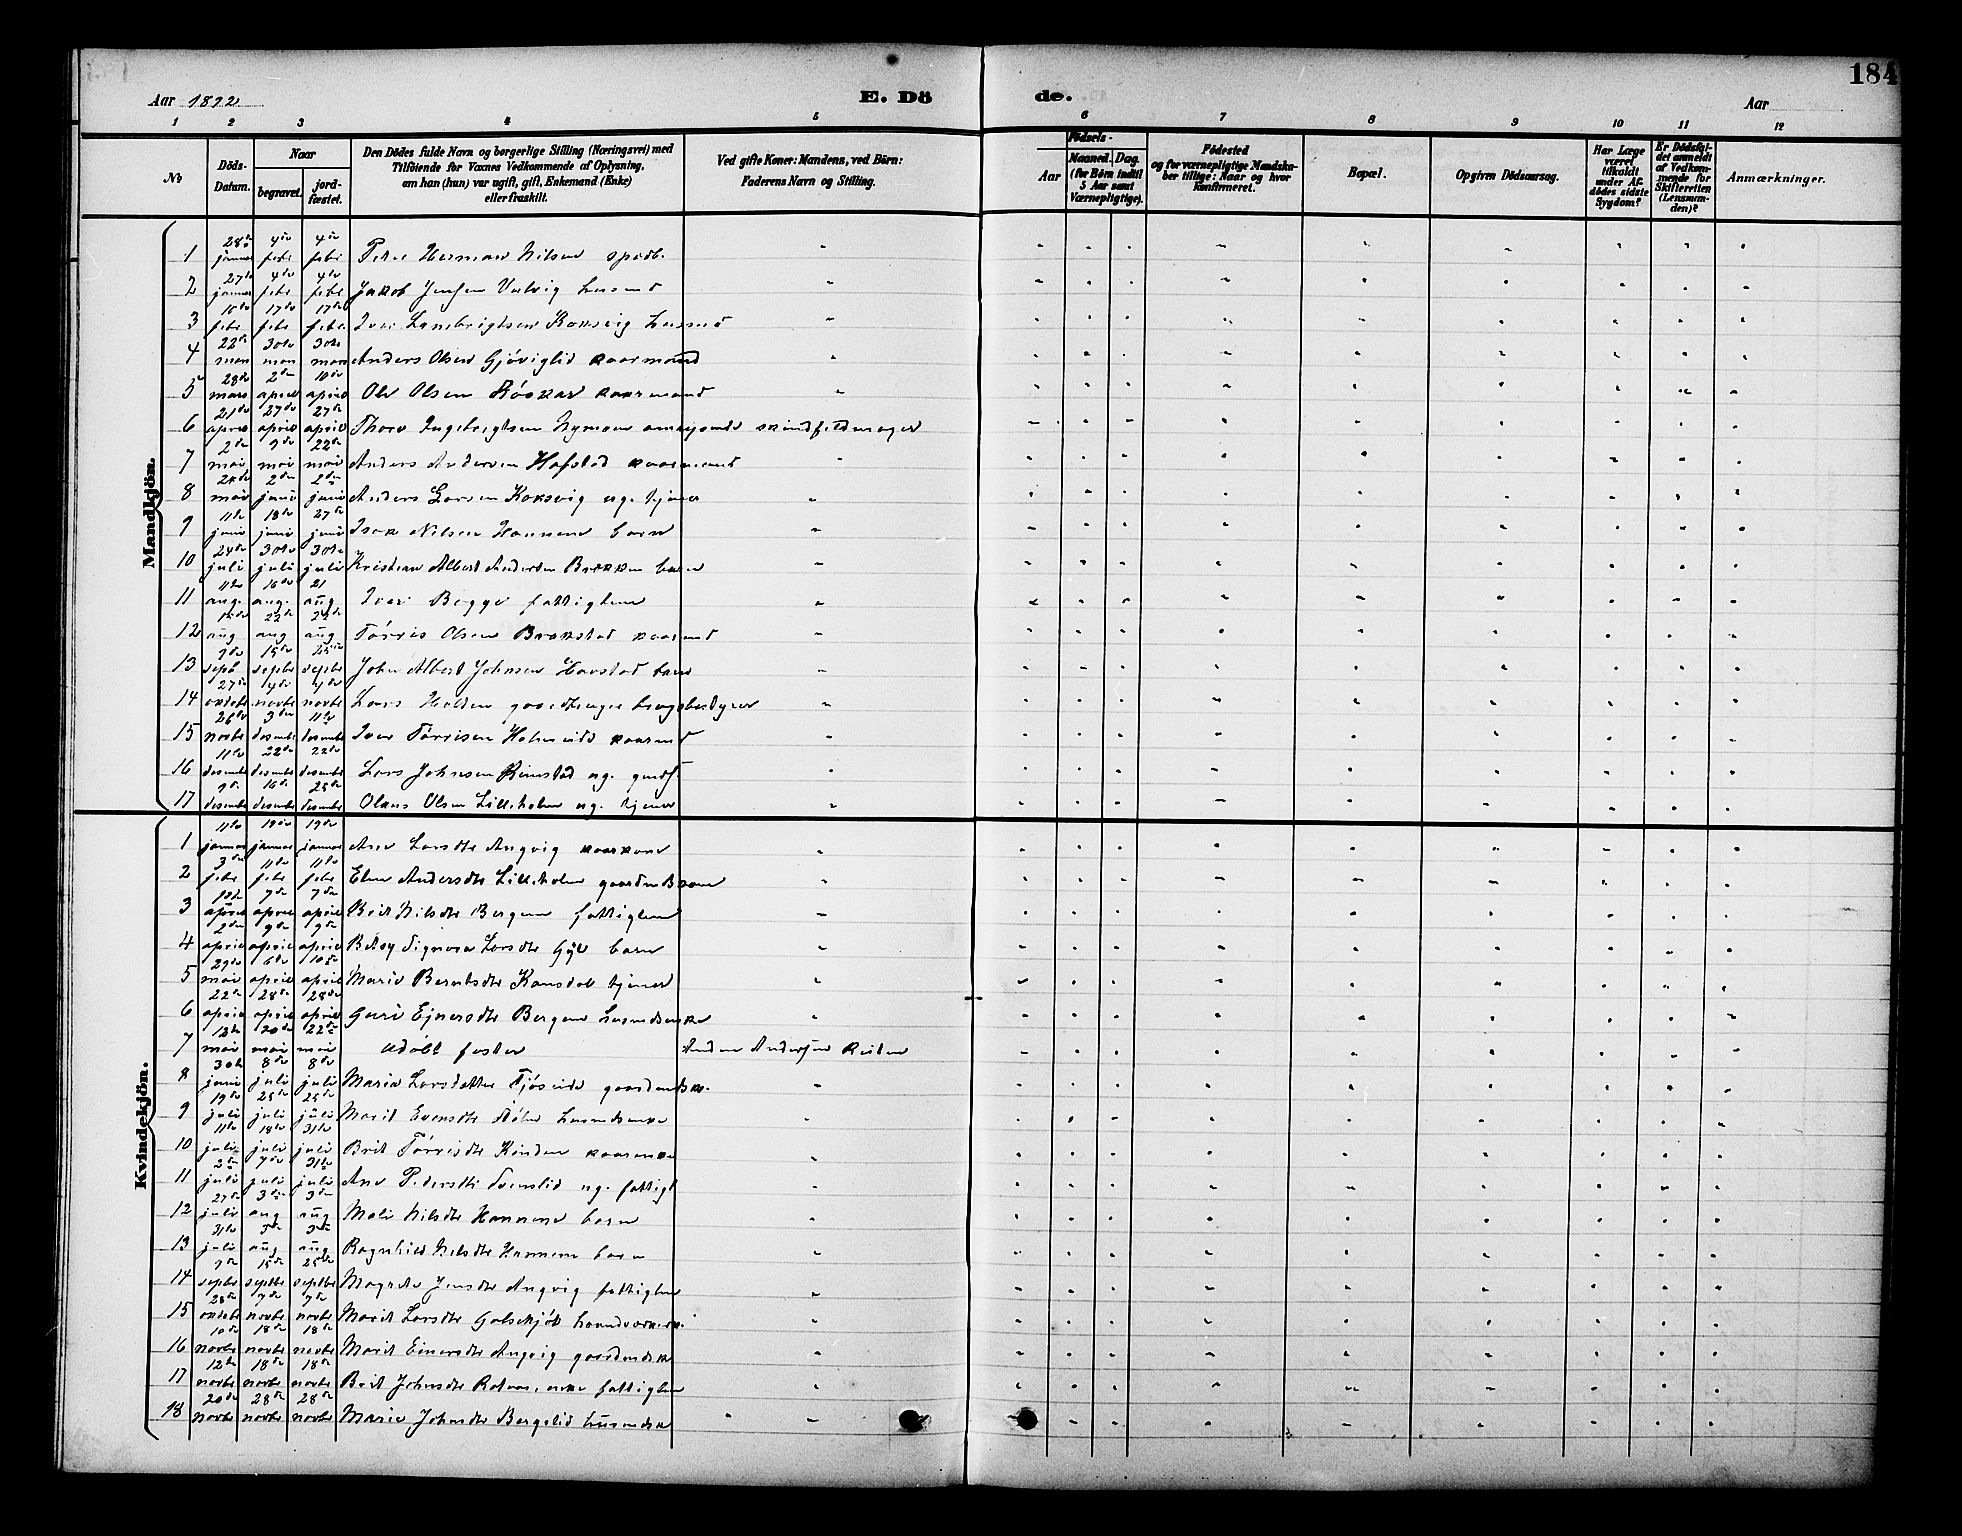 184
Aar 1892
E. Dö
de.
Aar
1 2 3 4 5 6 7 8 9 10 11 12
№
Döds-Datum.
Naar
begravet.
jord-fæstet.
Den Dödes fulde Navn og borgerlige Stilling (Næringsvei) med Tilföiende for Voxnes Vedkommende af Oplysning, om han (hun) var ugift, gift, Enkemand (Enke) eller fraskilt.
Ved gifte Koner: Mandens, ved Börn: Faderens Navn og Stilling.
Födsels-
Aar
Maaned. Dag.
(for Börn indtil 5 Aar samt Værnepligtige).
Födested og for værnepligtige Mandskaber tillige: Naar og hvor Konfirmeret.
Bopæl.
Opgiven Dödsaarsag.
Har Læge været tilkaldt under Afdödes sidste Sygdom?
Er Dödsfaldet anmeldt af Vedkommende for Skifteretten (Lensmanden)?
Anmærkninger.
Mandkjön.
1 28de januar 4de febr 4de febr Peter Herman Nilsen spædb.
2 27de januar 4de febr 4de febr Jakob Jensen Valvig husmd
3 febr 17de febr 17de febr Iver Lambrigtsen Koksvig husmd
4 22de 30te 30te Anders Olsen Gjöviglid kaarmand
5 28de mars 2den april 10de april Ole Olsen kaarmand
6 21de april 27de april 27de april Thore Ingebrigtsen Nymoen omreisende skindfeldmager
7 2den mai 9de mai 22de mai Anders Andersen Hofstad kaarmand
8 mai 2den juni 2den juni Anders Larsen Koksvig ug. tjener
9 11te juni 18de juni 27de juni Isak Nilsen Hannem barn
10 24de juli 30te juli 30te juli Kristian Albert Andersen Brækken barn
11 11te aug. 16de aug. 21 aug Iver Bogge fattiglem
12 aug 22de aug aug Törris Olsen Brakstad kaarmd
13 9de sept 15de septbr 25de septbr John Albert Johnsen Havstad barn
14 27de oktobr 4de novbr 4de novbr Lars Holden gaardbruger brugsbestyrer
15 26de novbr 3den desembr 11te desembr Iver Törrisen Holmeide kaarmd
16 11te desembr 22de desembr 22de desembr Lars Johnsen Rimstad ug. gmdf.
17 9de desembr 16de desembr 25de desembr Olaus Olsen Lilleholm ug. tjener
Kvindekjön.
1 11te januar 19de januar 19de januar Ane Larsdtr Angvig kaarkone
2 3de febr 11te febr 11te febr Elen Andersdtr Lilleholm gaardmdkone
3 april 7de april 7de april Brit Nilsdtr Bergem fattiglem
4 2den april 9de april 9de april Betsy Signora Larsdtr Gyl barn
5 29de 6de april 10de april Marie Berntsdtr Kansdal tjener
6 22de april 28de april 28de april Guri Ejnersdtr Bergem husmdsenke
7 mai 20de mai 22de mai udöbt foster Anders Andersen
8 30te juni 8de juli 8de juli Maria Larsdatter Tjösvide gaardmdsk.
9 19de juli 25de juli 25de juli Marit Evensdtr husmdsenke
10 11te juli 18de juli 31te juli Brit Törrisdtr kaarenke
11 2den juli 7de juli 31te juli Ane Pedersdtr Svenslid ug. fattigl
12 27de juli 3die aug 3die aug Mali Nilsdtr Hannem barn
13 31te juli aug aug Ragnhild Nilsdtr Hannem barn
14 9de septbr 15de septbr 25de septbr Magrete Jensdtr Angvig fattiglem
15 28de oktobr 7de novbr 7de novbr Marit Larsdtr haandværkerk.
16 10de novbr 18de novbr 18de novbr Marit Einersdtr Angvig gaardmdsk
17 12te novbr 18de novbr 18de novbr Brit Johnsdtr enke fattiglem
18 20de novbr 28de novbr 28de novbr Marie Johnsdtr Bergslid husmdsk